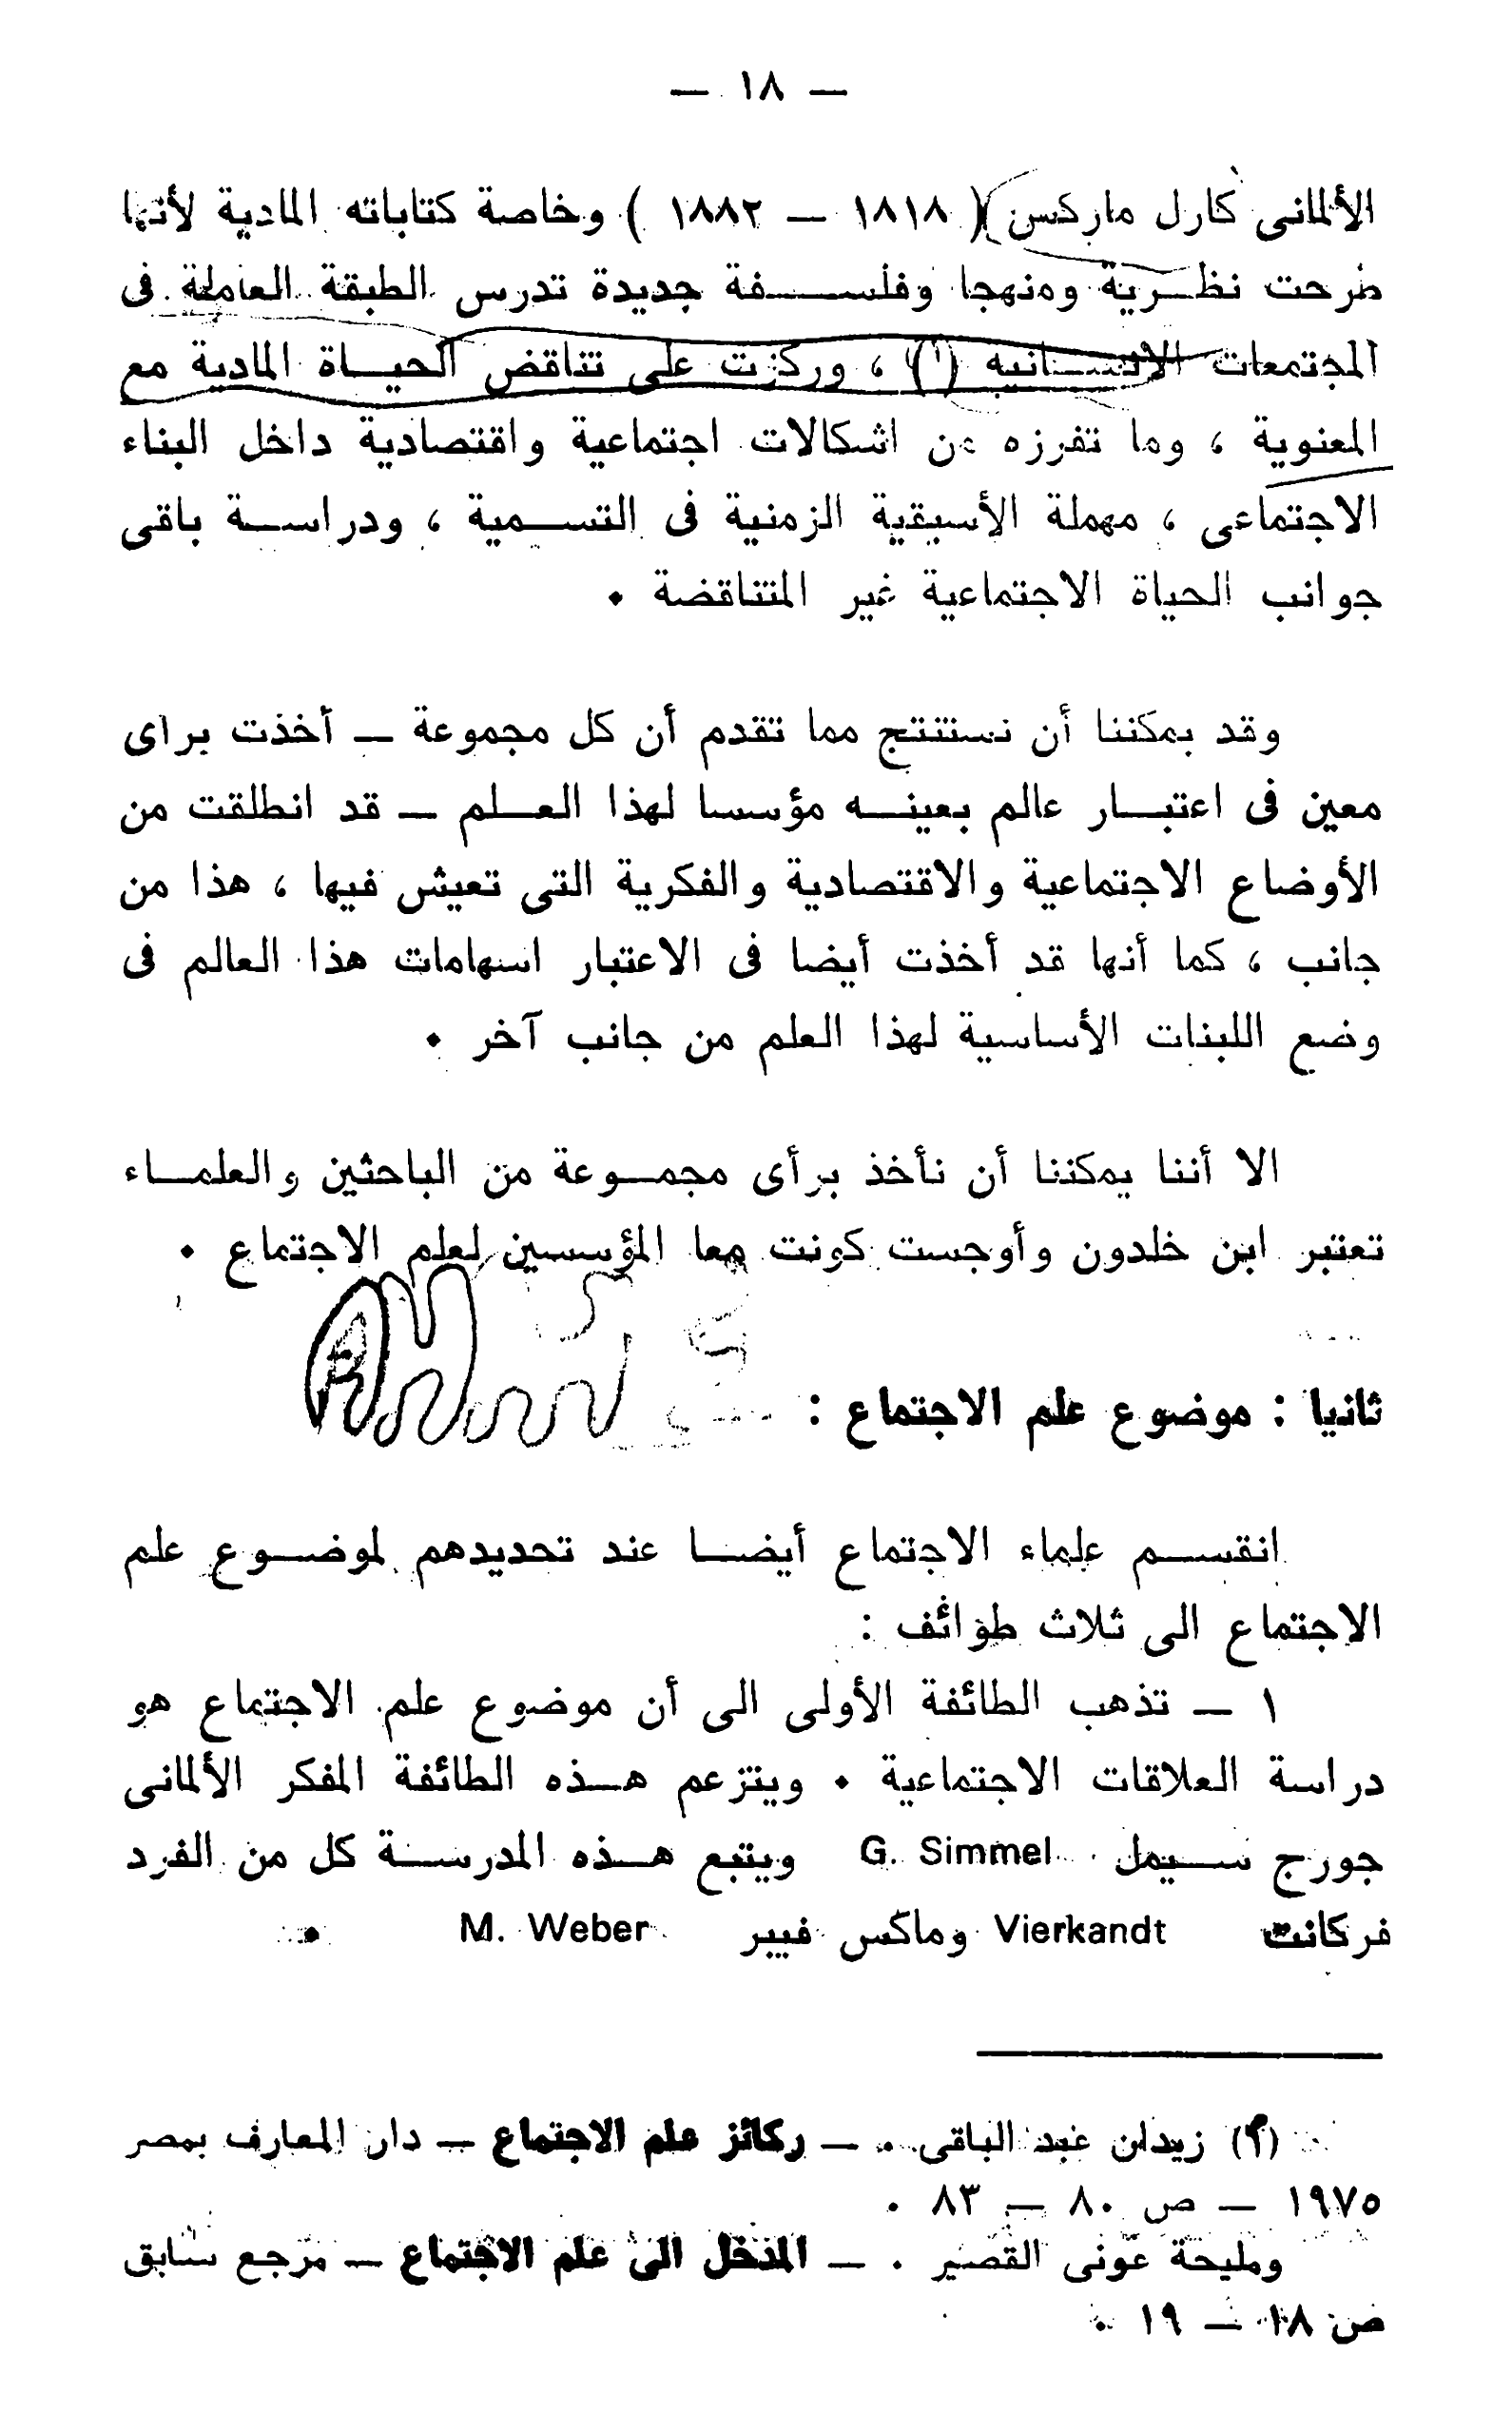 — ١٨ —
الألمانى كارل ماركس ( ١٨١٨ — ١٨٨٢ ) وخاصة كتاباته المادية لأنها
طرحت نظـرية ومنهجا وفلسـفة جديدة تدرس الطبقة العاملة فى
المجتمعات الانسـانيه (١) ، وركزت على تناقض الحيـاة المادية مع
المعنوية ، وما تفرزه من اشكالات اجتماعية واقتصادية داخل البناء
الاجتماعى ، مهملة الأسبقية الزمنية فى التسـمية ، ودراسـة باقى
جوانب الحياة الاجتماعية غير المتناقضة .
وقد يمكننا أن نستنتج مما تقدم أن كل مجموعة — أخذت براى
معين فى اعتبـار عالم بعينـه مؤسسا لهذا العـلم — قد انطلقت من
الأوضاع الاجتماعية والاقتصادية والفكرية التى تعيش فيها ، هذا من
جانب ، كما أنها قد أخذت أيضا فى الاعتبار اسهامات هذا العالم فى
وضع اللبنات الأساسية لهذا العلم من جانب آخر .
الا أننا يمكننا أن نأخذ برأى مجمـوعة من الباحثين والعلمـاء
تعتبر ابن خلدون وأوجست كونت معا المؤسسين لعلم الاجتماع .
ثانيا : موضوع علم الاجتماع :
انقسـم علماء الاجتماع أيضـا عند تحديدهم لموضـوع علم
الاجتماع الى ثلاث طوائف :
١ — تذهب الطائفة الأولى الى أن موضوع علم الاجتماع هو
دراسة العلاقات الاجتماعية . ويتزعم هـذه الطائفة المفكر الألمانى
جورج سـيمل G. Simmel ويتبع هـذه المدرسـة كل من الفرد
فركانت Vierkandt وماكس فيبر M. Weber .
زيدان عبد الباقى . — ركائز علم الاجتماع — دار المعارف بمصر
١٩٧٥ — ص ٨٠ — ٨٣ .
ومليحة عونى القصير . — المدخل الى علم الاجتماع — مرجع سابق
ص ١٨ — ١٩ .